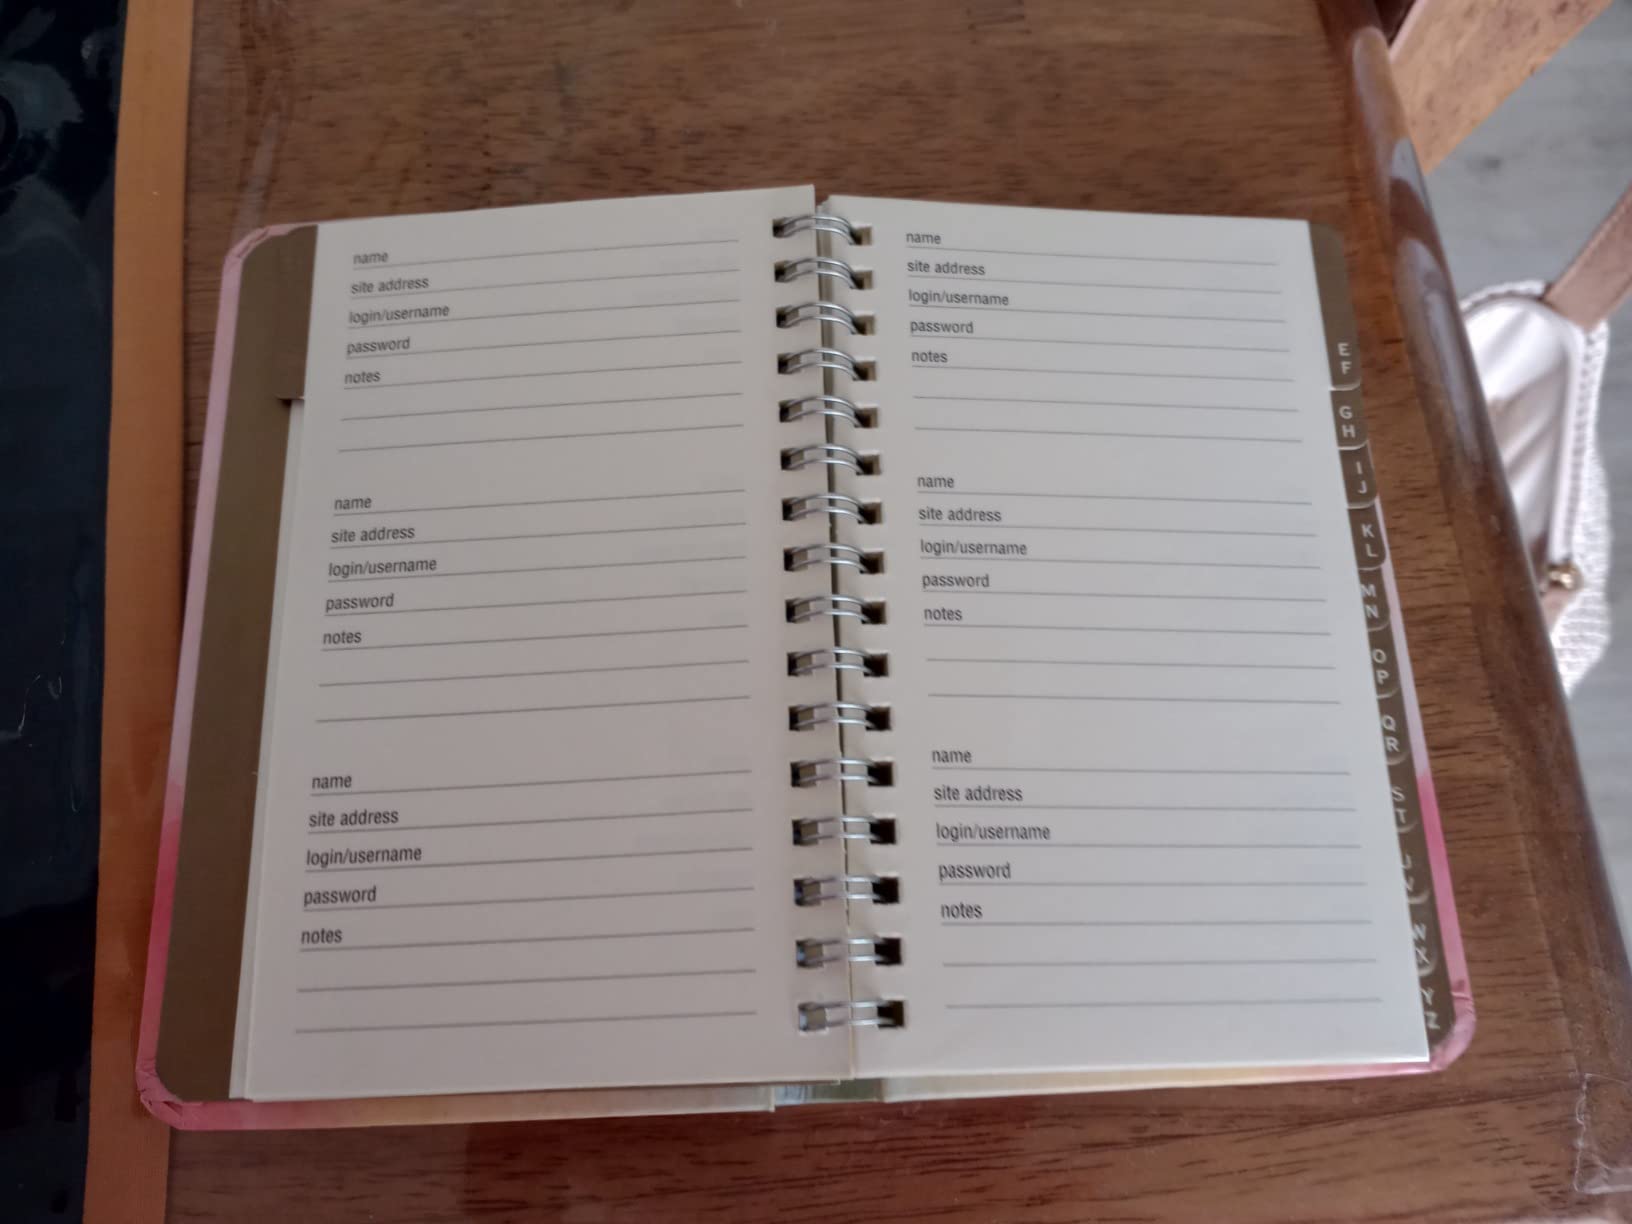 name
site address
login/username
password
notes
name
site address
login/username
password
notes
name
site address
login/username
password
notes
name
site address
login/username
password
notes
name
site address
login/username
password
notes
name
site address
login/username
password
notes
E
F
G
H
I
J
K
L
M
N
O
P
Q
R
S
T
U
V
W
X
Y
Z